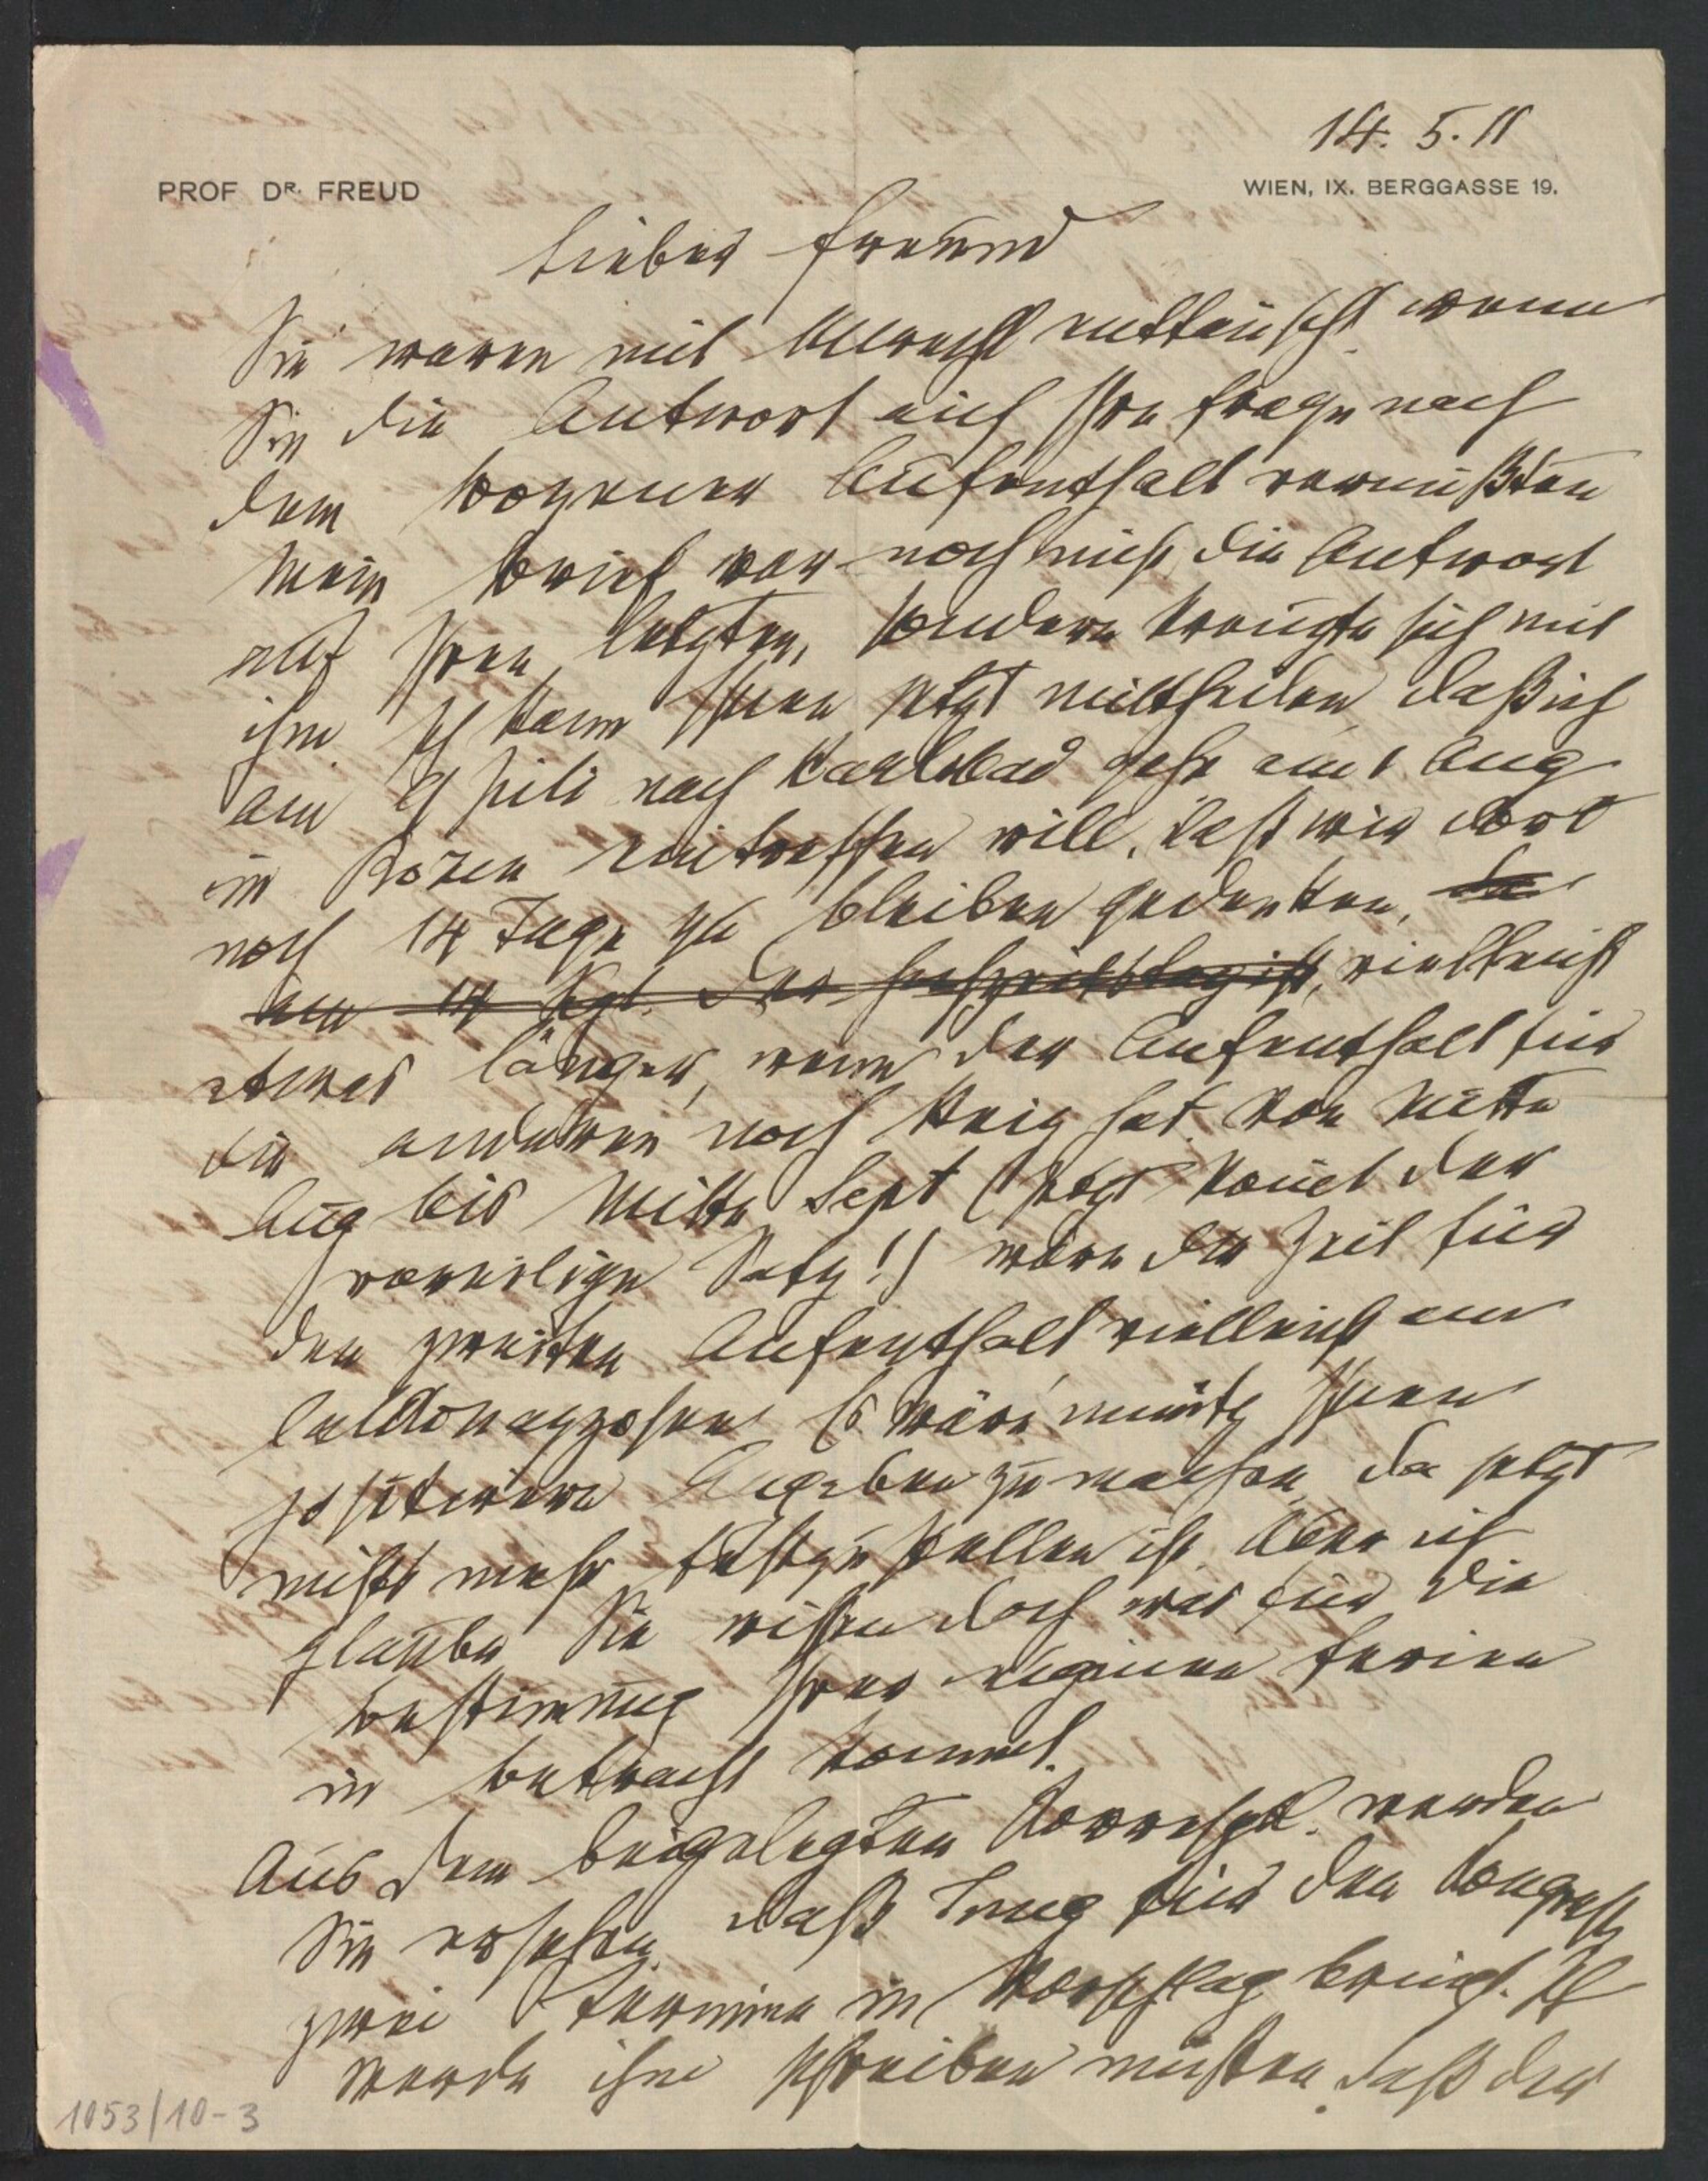 14. 5. 11
PROF. DR. FREUD
WIEN, IX. BERGGASSE 19.
Lieber Freund
Sie waren mit Unrecht enttäuscht, wenn
Sie die Antwort auf Ihre Frage nach
dem Bozener Aufenthalt vermißten
Mein Brief war noch nicht die Antwort
auf Ihren letzten, sondern kreuzte sich mit
ihm. Ich kann Ihnen jetzt mittheilen, daß ich
am 9 Juli nach Karlsbad gehe am 1 Aug
in Bozen eintreffen will, daß wir dort
noch 14 Tage zu bleiben gedenken, da
am 14 Spt. der Hochzeitstag ist, vielleicht
etwas länger, wenn der Aufenthalt für
die anderen noch Reiz hat. Von Mitte
Aug bis Mitte Sept (jetzt kommt der
voreilige Satz!) wäre die Zeit für
den zweiten Aufenthalt vielleicht am
Caldonazzosee. Es wäre unnütz Ihnen
positivere Angaben zu machen, da jetzt
nicht mehr festzustellen ist. Aber ich
glaube Sie wissen doch was für die
Bestimmung Ihrer eigenen Ferien
in Betracht kommt.
Aus dem beigelegten Korrespbl. werden
Sie ersehen, daß Jung für den Congreß
zwei Termine in Vorschlag bringt. Ich
werde ihm schreiben müssen, daß der
1053/10-3